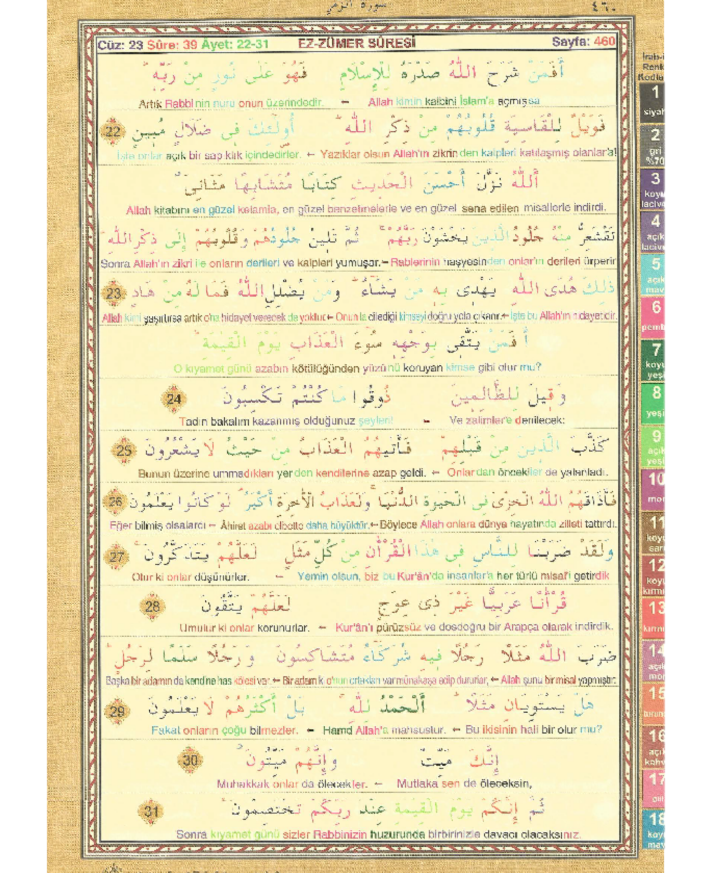 سورة الزمر ٤٦٠
Cüz: 23 Sûre: 39 Âyet: 22-31 EZ-ZÜMER SÛRESİ Sayfa: 460
أَفَمَنْ شَرَحَ اللّٰهُ صَدْرَهُ لِلْاِسْلَامِ فَهُوَ عَلٰى نُورٍ مِنْ رَبِّهٖ
Artık Rabbi'nin nuru onun üzerindedir. – Allah kimin kalbini İslam'a açmışsa
فَوَيْلٌ لِلْقَاسِيَةِ قُلُوبُهُمْ مِنْ ذِكْرِ اللّٰهِ اُولٰٓئِكَ فٖى ضَلَالٍ مُبٖينٍ 22
İşte onlar açık bir sapıklık içindedirler. ← Yazıklar olsun Allah'ın zikrinden kalpleri katılaşmış olanlar'a!
اَللّٰهُ نَزَّلَ اَحْسَنَ الْحَدٖيثِ كِتَابًا مُتَشَابِهًا مَثَانِىَ
Allah kitabını en güzel kelamla, en güzel benzetmelerle ve en güzel sena edilen misallerle indirdi.
تَقْشَعِرُّ مِنْهُ جُلُودُ الَّذٖينَ يَخْشَوْنَ رَبَّهُمْ ثُمَّ تَلٖينُ جُلُودُهُمْ وَقُلُوبُهُمْ اِلٰى ذِكْرِ اللّٰهِ
Sonra Allah'ın zikri ile onların derileri ve kalpleri yumuşar.– Rablerinin haşyesinden onlar'ın derileri ürperir
ذٰلِكَ هُدَى اللّٰهِ يَهْدٖى بِهٖ مَنْ يَشَٓاءُ وَمَنْ يُضْلِلِ اللّٰهُ فَمَا لَهُ مِنْ هَادٍ 23
Allah kimi şaşırtırsa artık o'na hidayet verecek de yoktur.← Onunla dilediği kimseyi doğru yola çıkarır.← İşte bu Allah'ın hidayetidir.
اَفَمَنْ يَتَّقٖى بِوَجْهِهٖ سُٓوءَ الْعَذَابِ يَوْمَ الْقِيٰمَةِ
O kıyamet günü azabın kötülüğünden yüzünü koruyan kimse gibi olur mu?
وَقٖيلَ لِلظَّالِمٖينَ ذُوقُوا مَا كُنْتُمْ تَكْسِبُونَ 24
Tadın bakalım kazanmış olduğunuz şeyleri! – Ve zalimler'e denilecek:
كَذَّبَ الَّذٖينَ مِنْ قَبْلِهِمْ فَاَتٰيهُمُ الْعَذَابُ مِنْ حَيْثُ لَا يَشْعُرُونَ 25
Bunun üzerine ummadıkları yerden kendilerine azap geldi. ← Onlardan öncekiler de yalanladı.
فَاَذَاقَهُمُ اللّٰهُ الْخِزْىَ فِى الْحَيٰوةِ الدُّنْيَا وَلَعَذَابُ الْاٰخِرَةِ اَكْبَرُ لَوْ كَانُوا يَعْلَمُونَ 26
Eğer bilmiş olsalardı ← Âhiret azabı elbette daha büyüktür.←Böylece Allah onlara dünya hayatında zilleti tattırdı.
وَلَقَدْ ضَرَبْنَا لِلنَّاسِ فٖى هٰذَا الْقُرْاٰنِ مِنْ كُلِّ مَثَلٍ لَعَلَّهُمْ يَتَذَكَّرُونَ 27
Olur ki onlar düşünürler. – Yemin olsun, biz bu Kur'ân'da insanlar'a her türlü misal'i getirdik
قُرْاٰنًا عَرَبِيًّا غَيْرَ ذٖى عِوَجٍ لَعَلَّهُمْ يَتَّقُونَ 28
Umulur ki onlar korunurlar. – Kur'ân'ı pürüzsüz ve dosdoğru bir Arapça olarak indirdik.
ضَرَبَ اللّٰهُ مَثَلًا رَجُلًا فٖيهِ شُرَكَٓاءُ مُتَشَاكِسُونَ وَرَجُلًا سَلَمًا لِرَجُلٍ
Başka bir adamın da kendine has kölesi var ← Bir adam ki o'nun ortakları var münakaşa edip dururlar, ← Allah şunu bir misal yapmıştır:
هَلْ يَسْتَوِيَانِ مَثَلًا اَلْحَمْدُ لِلّٰهِ بَلْ اَكْثَرُهُمْ لَا يَعْلَمُونَ 29
Fakat onların çoğu bilmezler. ← Hamd Allah'a mahsustur. ← Bu ikisinin hali bir olur mu?
اِنَّكَ مَيِّتٌ وَاِنَّهُمْ مَيِّتُونَ 30
Muhakkak onlar da ölecekler. ← Mutlaka sen de öleceksin,
ثُمَّ اِنَّكُمْ يَوْمَ الْقِيٰمَةِ عِنْدَ رَبِّكُمْ تَخْتَصِمُونَ 31
Sonra kıyamet günü sizler Rabbinizin huzurunda birbirinizle davacı olacaksınız.
1
siyah
2
gri
%70
3
koyu
lacive
4
açık
laciv
5
açık
mavi
6
pemb
7
koyu
yeşi
8
yeşi
9
açık
yeşi
10
mor
11
koyu
sarı
12
koyu
kırmı
13
kırmı
14
açık
mor
15
16
açık
kahv
17
18
koyu
mav